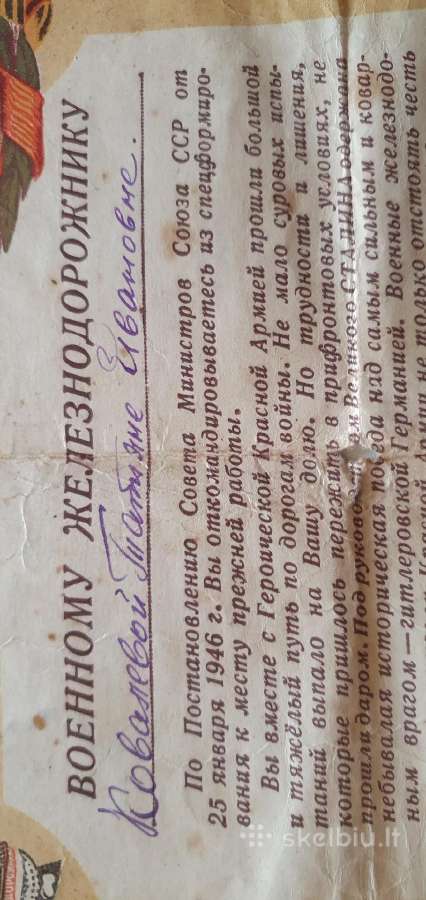 ВОЕННОМУ ЖЕЛЕЗНОДОРОЖНИКУ
Ковалевой Татьяне Ивановне.
По Постановлению Совета Министров Союза ССР от
25 января 1946 г. Вы откомандировываетесь из спецформиро-
вания к месту прежней работы.
Вы вместе с Героической Красной Армией прошли большой
и тяжёлый путь по дорогам войны. Не мало суровых испы-
таний выпало на Вашу долю. Но трудности и лишения,
которые пришлось пережить в прифронтовых условиях, не
прошли даром. Под руковод ом Великого СТАЛИНА одержана
небывалая историческая победа над самым сильным и ковар-
ным врагом — гитлеровской Германией. Военные железнодо-
Красной Армии не только отстоять честь
skelbiu.lt